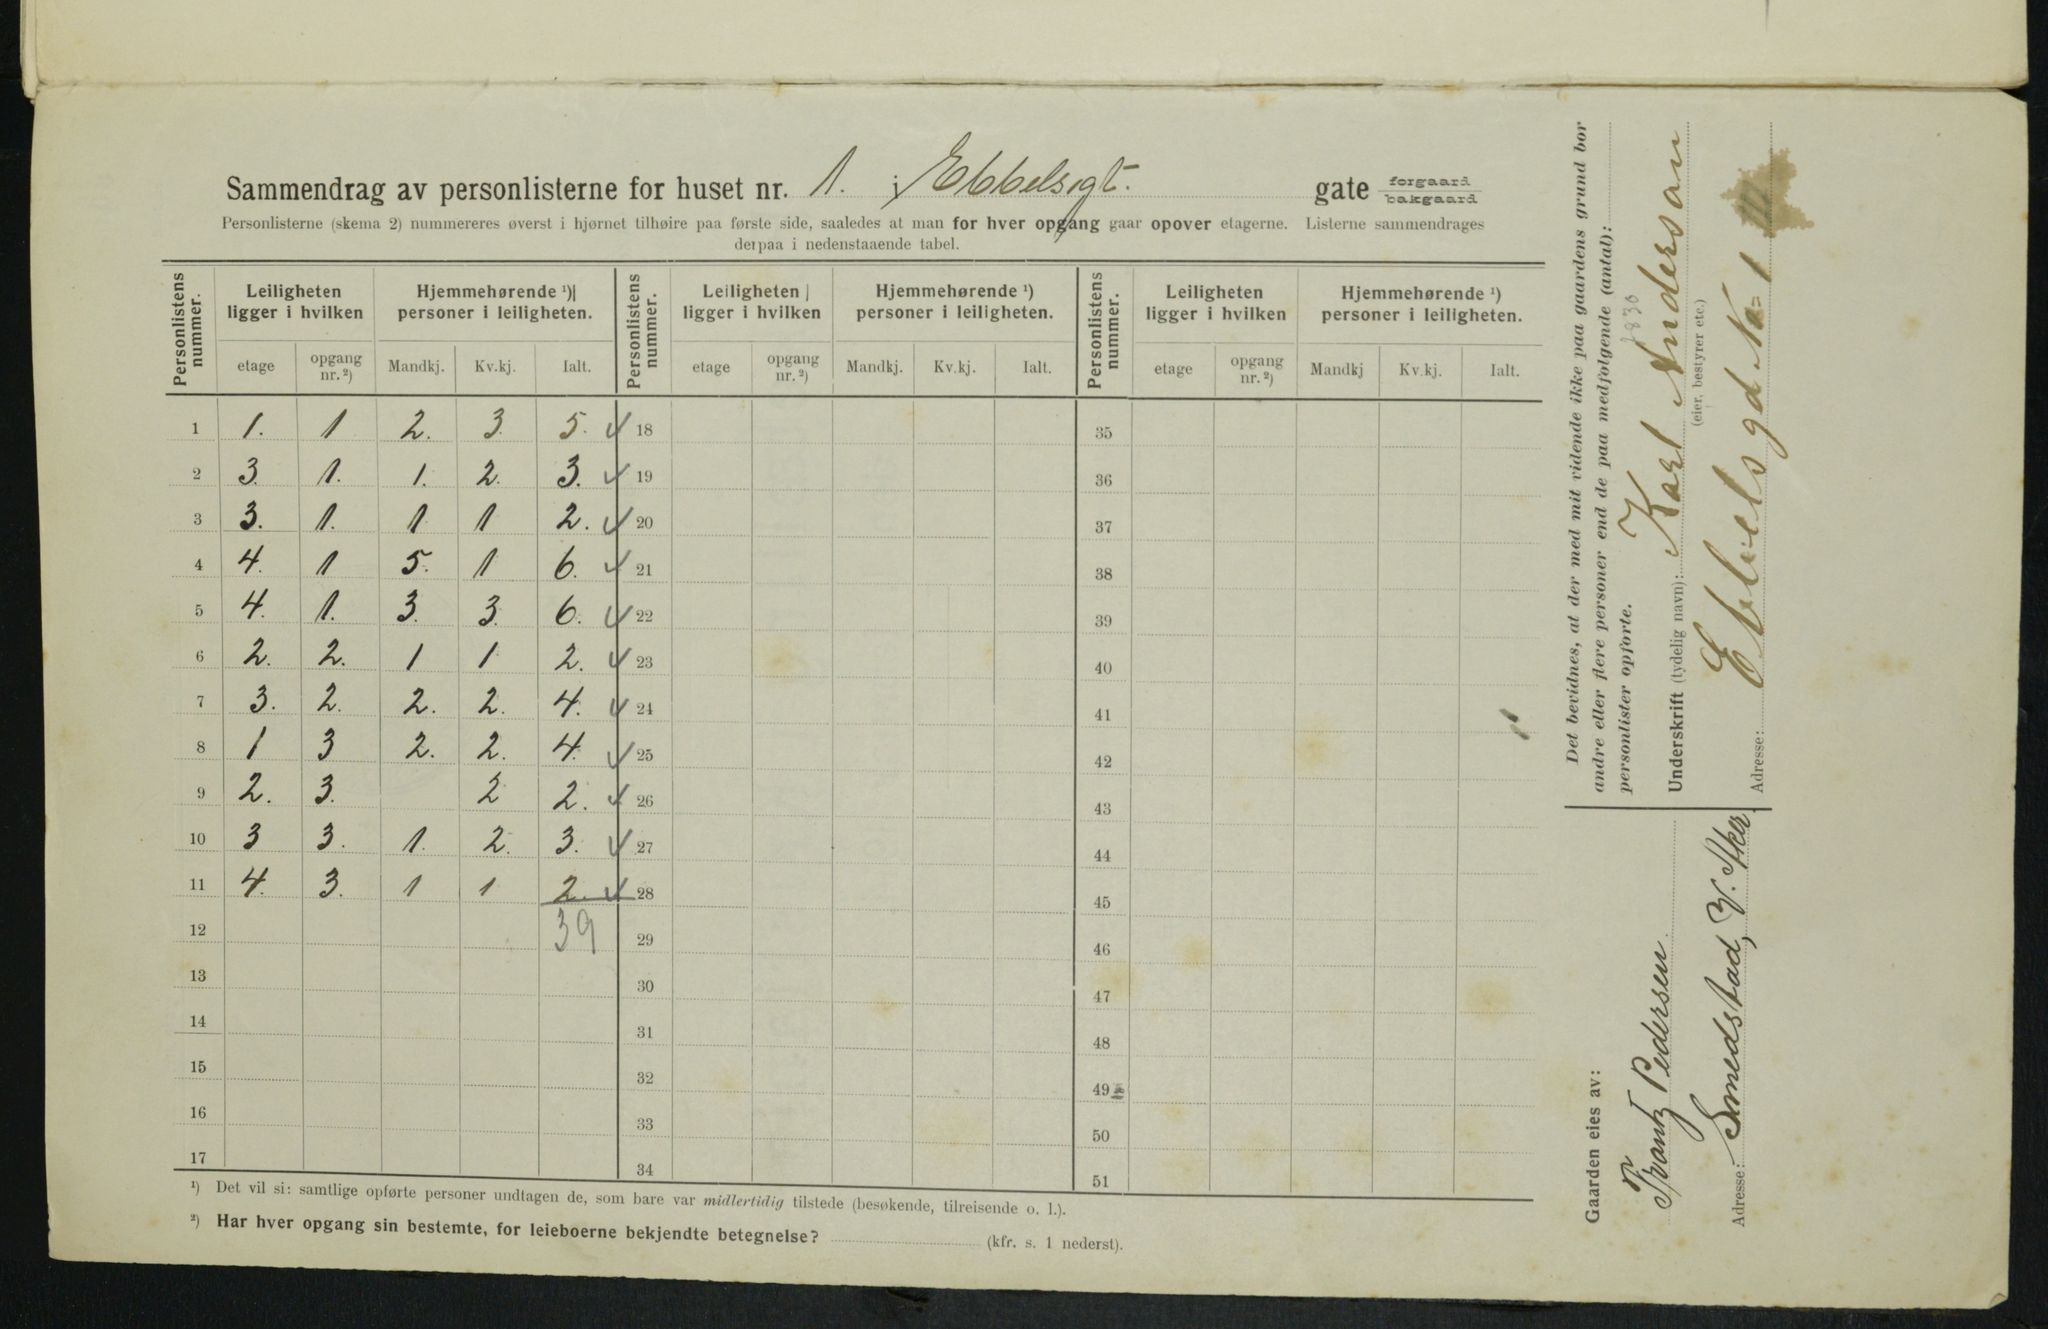 Sammendrag av personlisterne for huset nr. 1. i Ebbelsgt. gate forgaard bakgaard
Personlisterne (skema 2) nummereres øverst i hjørnet tilhøire paa første side, saaledes at man for hver opgang gaar opover etagerne. Listerne sammendrages
derpaa i nedenstaaende tabel.
Personlistens nummer. Leiligheten ligger i hvilken Hjemmehørende ¹) personer i leiligheten. Personlistens nummer. Leiligheten ligger i hvilken Hjemmehørende ¹) personer i leiligheten. Personlistens nummer. Leiligheten ligger i hvilken Hjemmehørende ¹) personer i leiligheten.
etage opgang nr. ²) Mandkj. Kv.kj. Ialt. etage opgang nr. ²) Mandkj. Kv.kj. Ialt. etage opgang nr. ²) Mandkj Kv.kj. Ialt.
1 1. 1 2. 3. 5. 18 35
2 3. 1. 1. 2. 3. 19 36
3 3. 1. 1 1 2. 20 37
4 4. 1 5. 1 6. 21 38
5 4. 1. 3. 3. 6. 22 39
6 2. 2. 1 1 2. 23 40
7 3. 2. 2. 2. 4. 24 41
8 1 3 2. 2. 4. 25 42
9 2. 3. 2 2. 26 43
10 3 3. 1. 2. 3. 27 44
11 4. 3. 1 1 2. 28 45
12 39 29 46
13 30 47
14 31 48
15 32 49
16 33 50
17 34 51
¹) Det vil si: samtlige opførte personer undtagen de, som bare var midlertidig tilstede (besøkende, tilreisende o. l.).
²) Har hver opgang sin bestemte, for leieboerne bekjendte betegnelse? (kfr. s. 1 nederst).
Det bevidnes, at der med mit vidende ikke paa gaardens grund bor
andre eller flere personer end de paa medfølgende (antal):
personlister opførte.
Underskrift (tydelig navn): Karl Anderson
(eier, bestyrer etc.)
Adresse: Ebbelsgd. No 1
Gaarden eies av:
Frantz Pedersen
Adresse: Smedstad, V. Aker